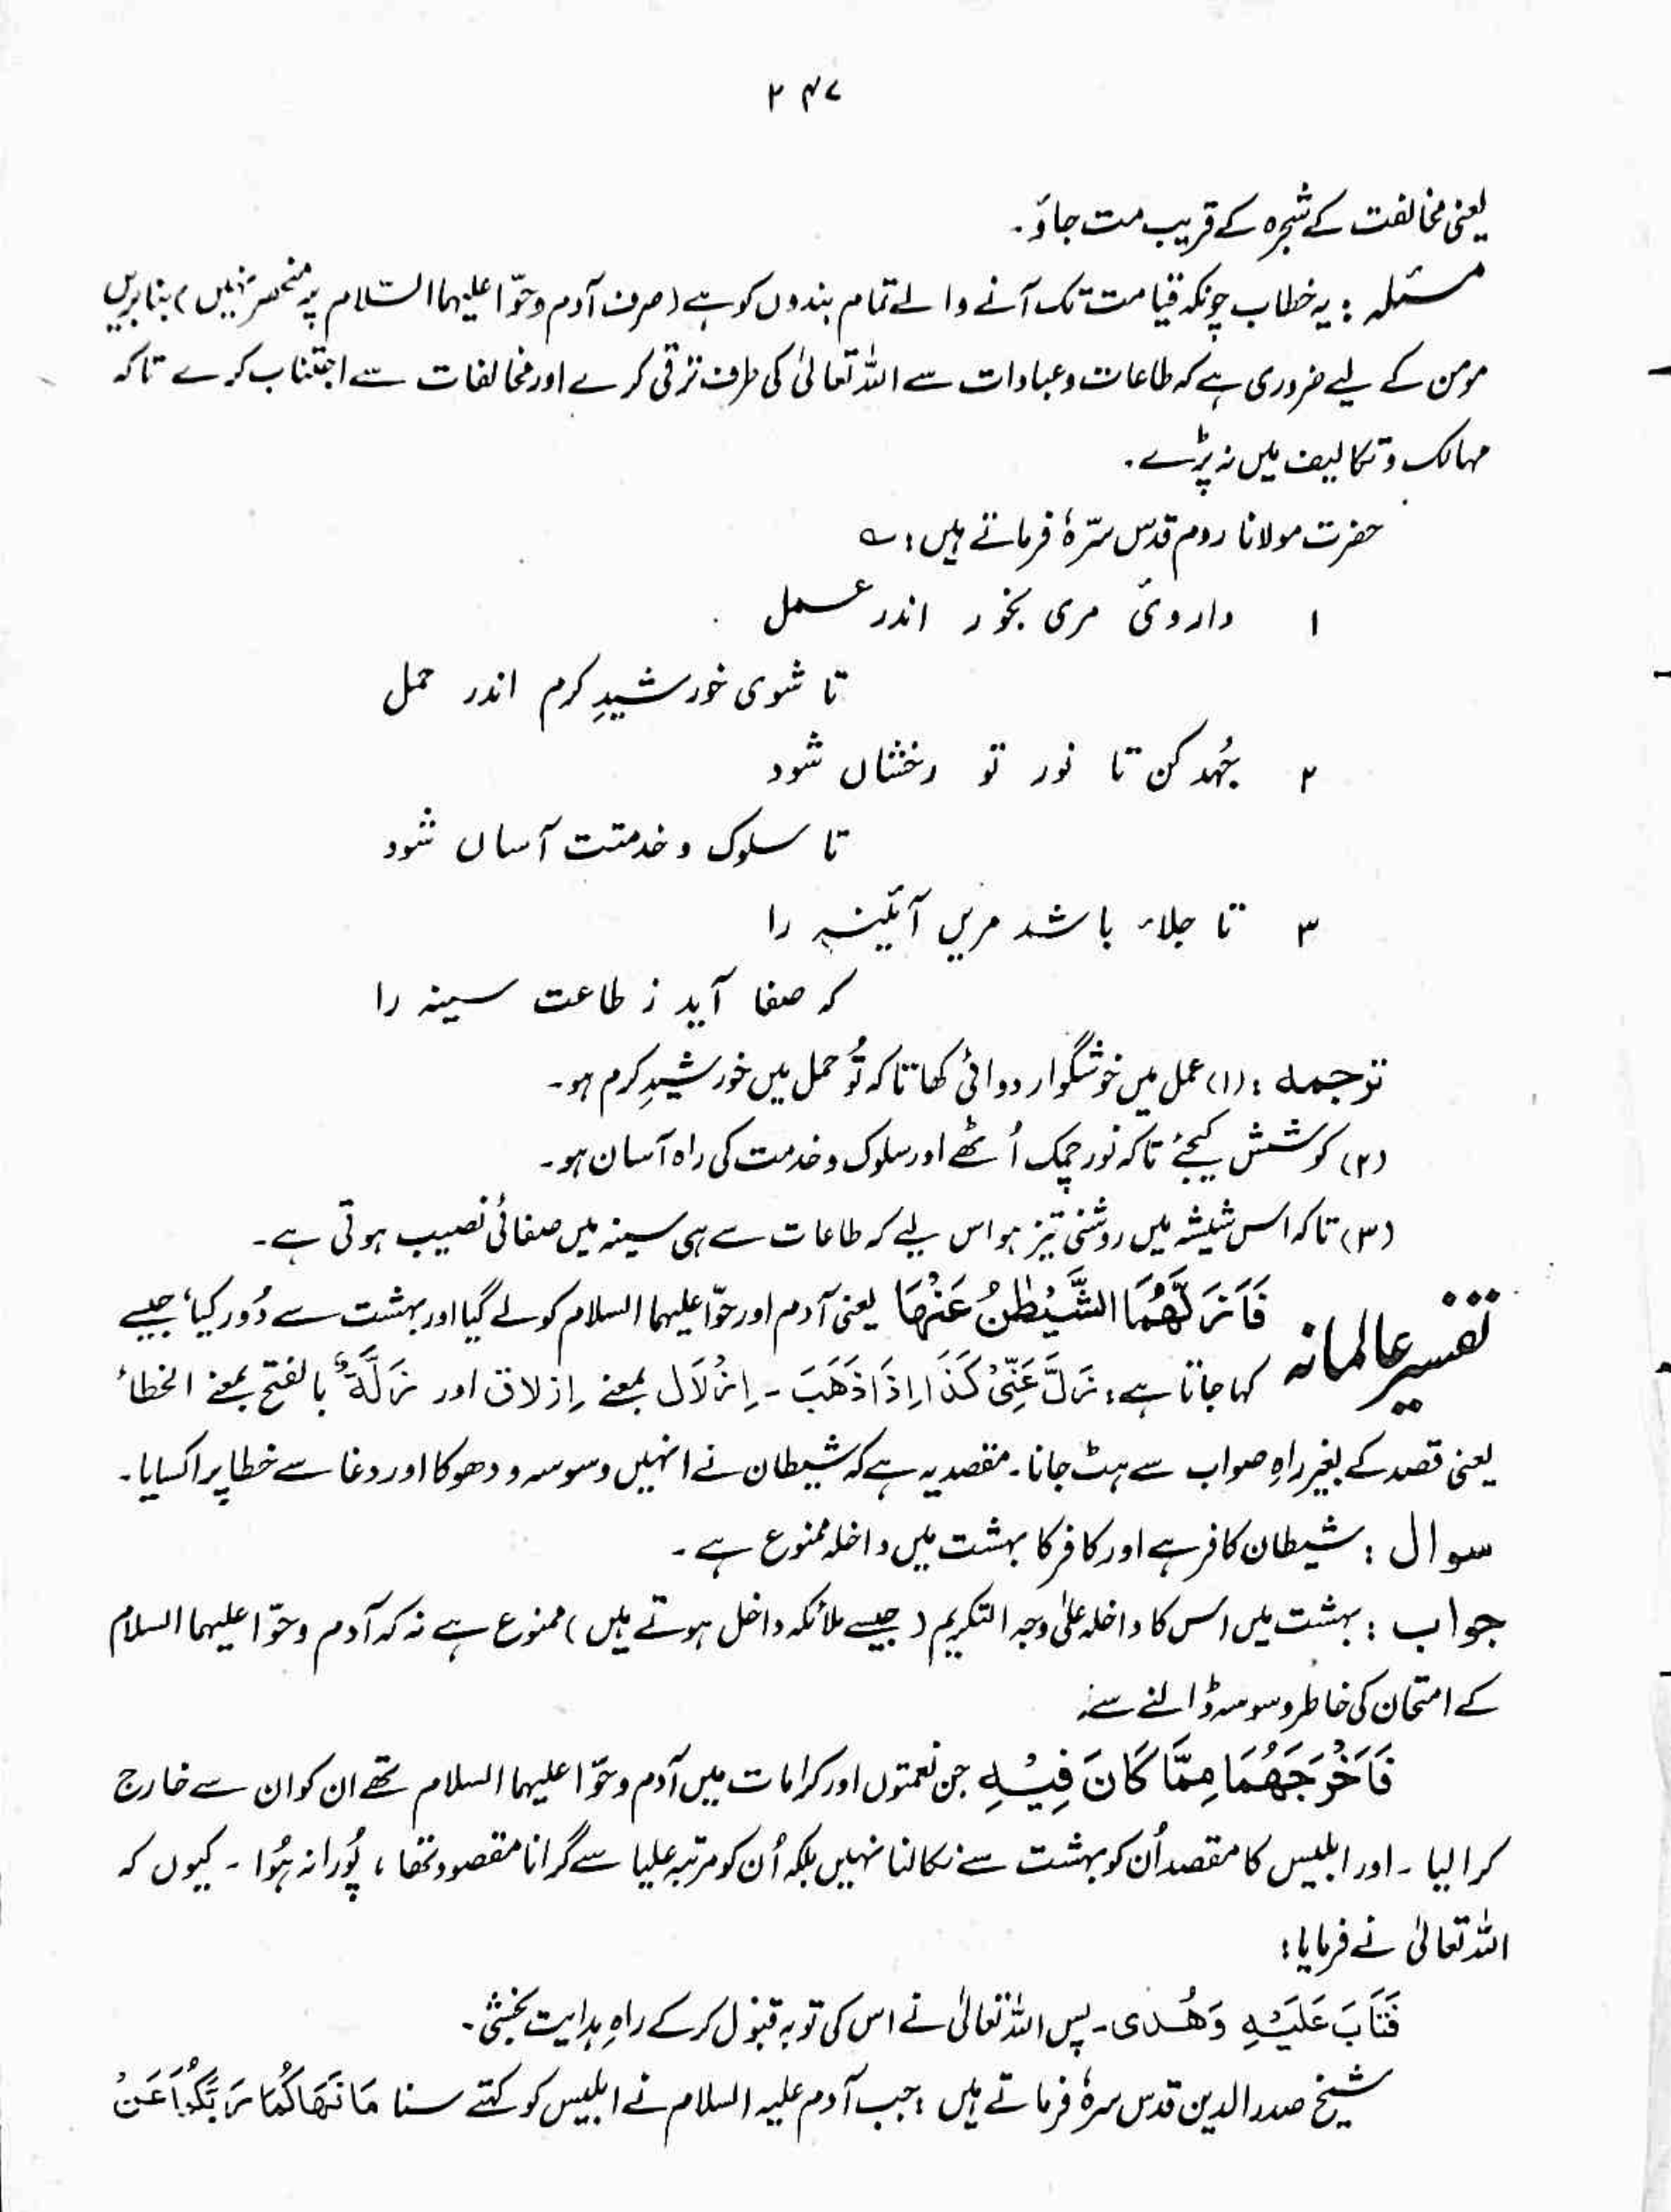 ۲۴۷
یعنی مخالفت کے شجرہ کے قریب مت جاؤ۔
مسئلہ : یہ خطاب چونکہ قیامت تک آنے والے تمام بندوں کو ہے (صرف آدم و حوّا علیہما السّلام پر منحصر نہیں) بنابریں
مومن کے لیے ضروری ہے کہ طاعات و عبادات سے اللہ تعالیٰ کی طرف ترقی کرے اور مخالفات سے اجتناب کرے تاکہ
مہالک و تکالیف میں نہ پڑے۔
حضرت مولانا روم قدس سرّہٗ فرماتے ہیں : ؎
۱ داروئ مری بخور اندر عمل
تا شوی خورشیدِ کرم اندر حمل
۲ جُہد کن تا نور تو رخشاں شود
تا سلوک و خدمتت آساں شود
۳ تا جلاء باشد مریں آئینہ را
کہ صفا آید ز طاعت سینہ را
ترجمہ : (۱) عمل میں خوشگوار دوائی کھا تاکہ تُو حمل میں خورشیدِ کرم ہو۔
(۲) کوشش کیجئے تاکہ نور چمک اُٹھے اور سلوک و خدمت کی راہ آسان ہو۔
(۳) تاکہ اس شیشہ میں روشنی تیز ہو اس لیے کہ طاعات سے ہی سینہ میں صفائی نصیب ہوتی ہے۔
تفسیر عالمانہ فَاَزَلَّهُمَا الشَّيْطٰنُ عَنْهَا یعنی آدم اور حوّا علیہما السلام کو لے گیا اور بہشت سے دُور کیا، جیسے
کہا جاتا ہے : زَلَّ عَنِّیْ کَذَا اِذَا ذَهَبَ ۔ اِزْلَال بمعنے اِزلاق اور زَلَّةٌ بالفتح بمعنے الخطاء
یعنی قصد کے بغیر راہِ صواب سے ہٹ جانا۔ مقصد یہ ہے کہ شیطان نے انہیں وسوسہ و دھوکا اور دغا سے خطا پر اکسایا۔
سوال : شیطان کافر ہے اور کافر کا بہشت میں داخلہ ممنوع ہے ۔
جواب : بہشت میں اس کا داخلہ علیٰ وجہ التکریم (جیسے ملائکہ داخل ہوتے ہیں) ممنوع ہے نہ کہ آدم و حوّا علیہما السلام
کے امتحان کی خاطر وسوسہ ڈالنے سے۔
فَاَخْرَجَهُمَا مِمَّا كَانَ فِيْهِ جن نعمتوں اور کرامات میں آدم و حوّا علیہما السلام تھے ان کو ان سے خارج
کرالیا ۔ اور ابلیس کا مقصد اُن کو بہشت سے نکالنا نہیں بلکہ اُن کو مرتبہ علیا سے گرانا مقصود تھا ، پُورا نہ ہُوا ۔ کیوں کہ
اللہ تعالیٰ نے فرمایا :
فَتَابَ عَلَيْهِ وَهُدٰى۔ پس اللہ تعالیٰ نے اس کی توبہ قبول کرکے راہِ ہدایت بخشی۔
شیخ صدر الدین قدس سرہٗ فرماتے ہیں : جب آدم علیہ السلام نے ابلیس کو کہتے سنا مَا نَهَاكُمَا رَبُّكُمَا عَنْ